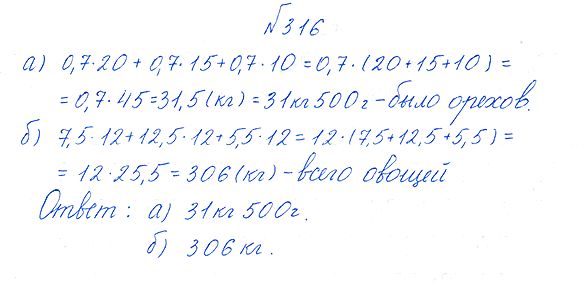 №316
а) 0,7·20 + 0,7·15 + 0,7·10 = 0,7·(20+15+10) =
= 0,7·45 = 31,5 (кг) = 31 кг 500 г – было орехов.
б) 7,5·12 + 12,5·12 + 5,5·12 = 12·(7,5+12,5+5,5) =
= 12·25,5 = 306 (кг) – всего овощей
Ответ: а) 31 кг 500 г.
б) 306 кг.